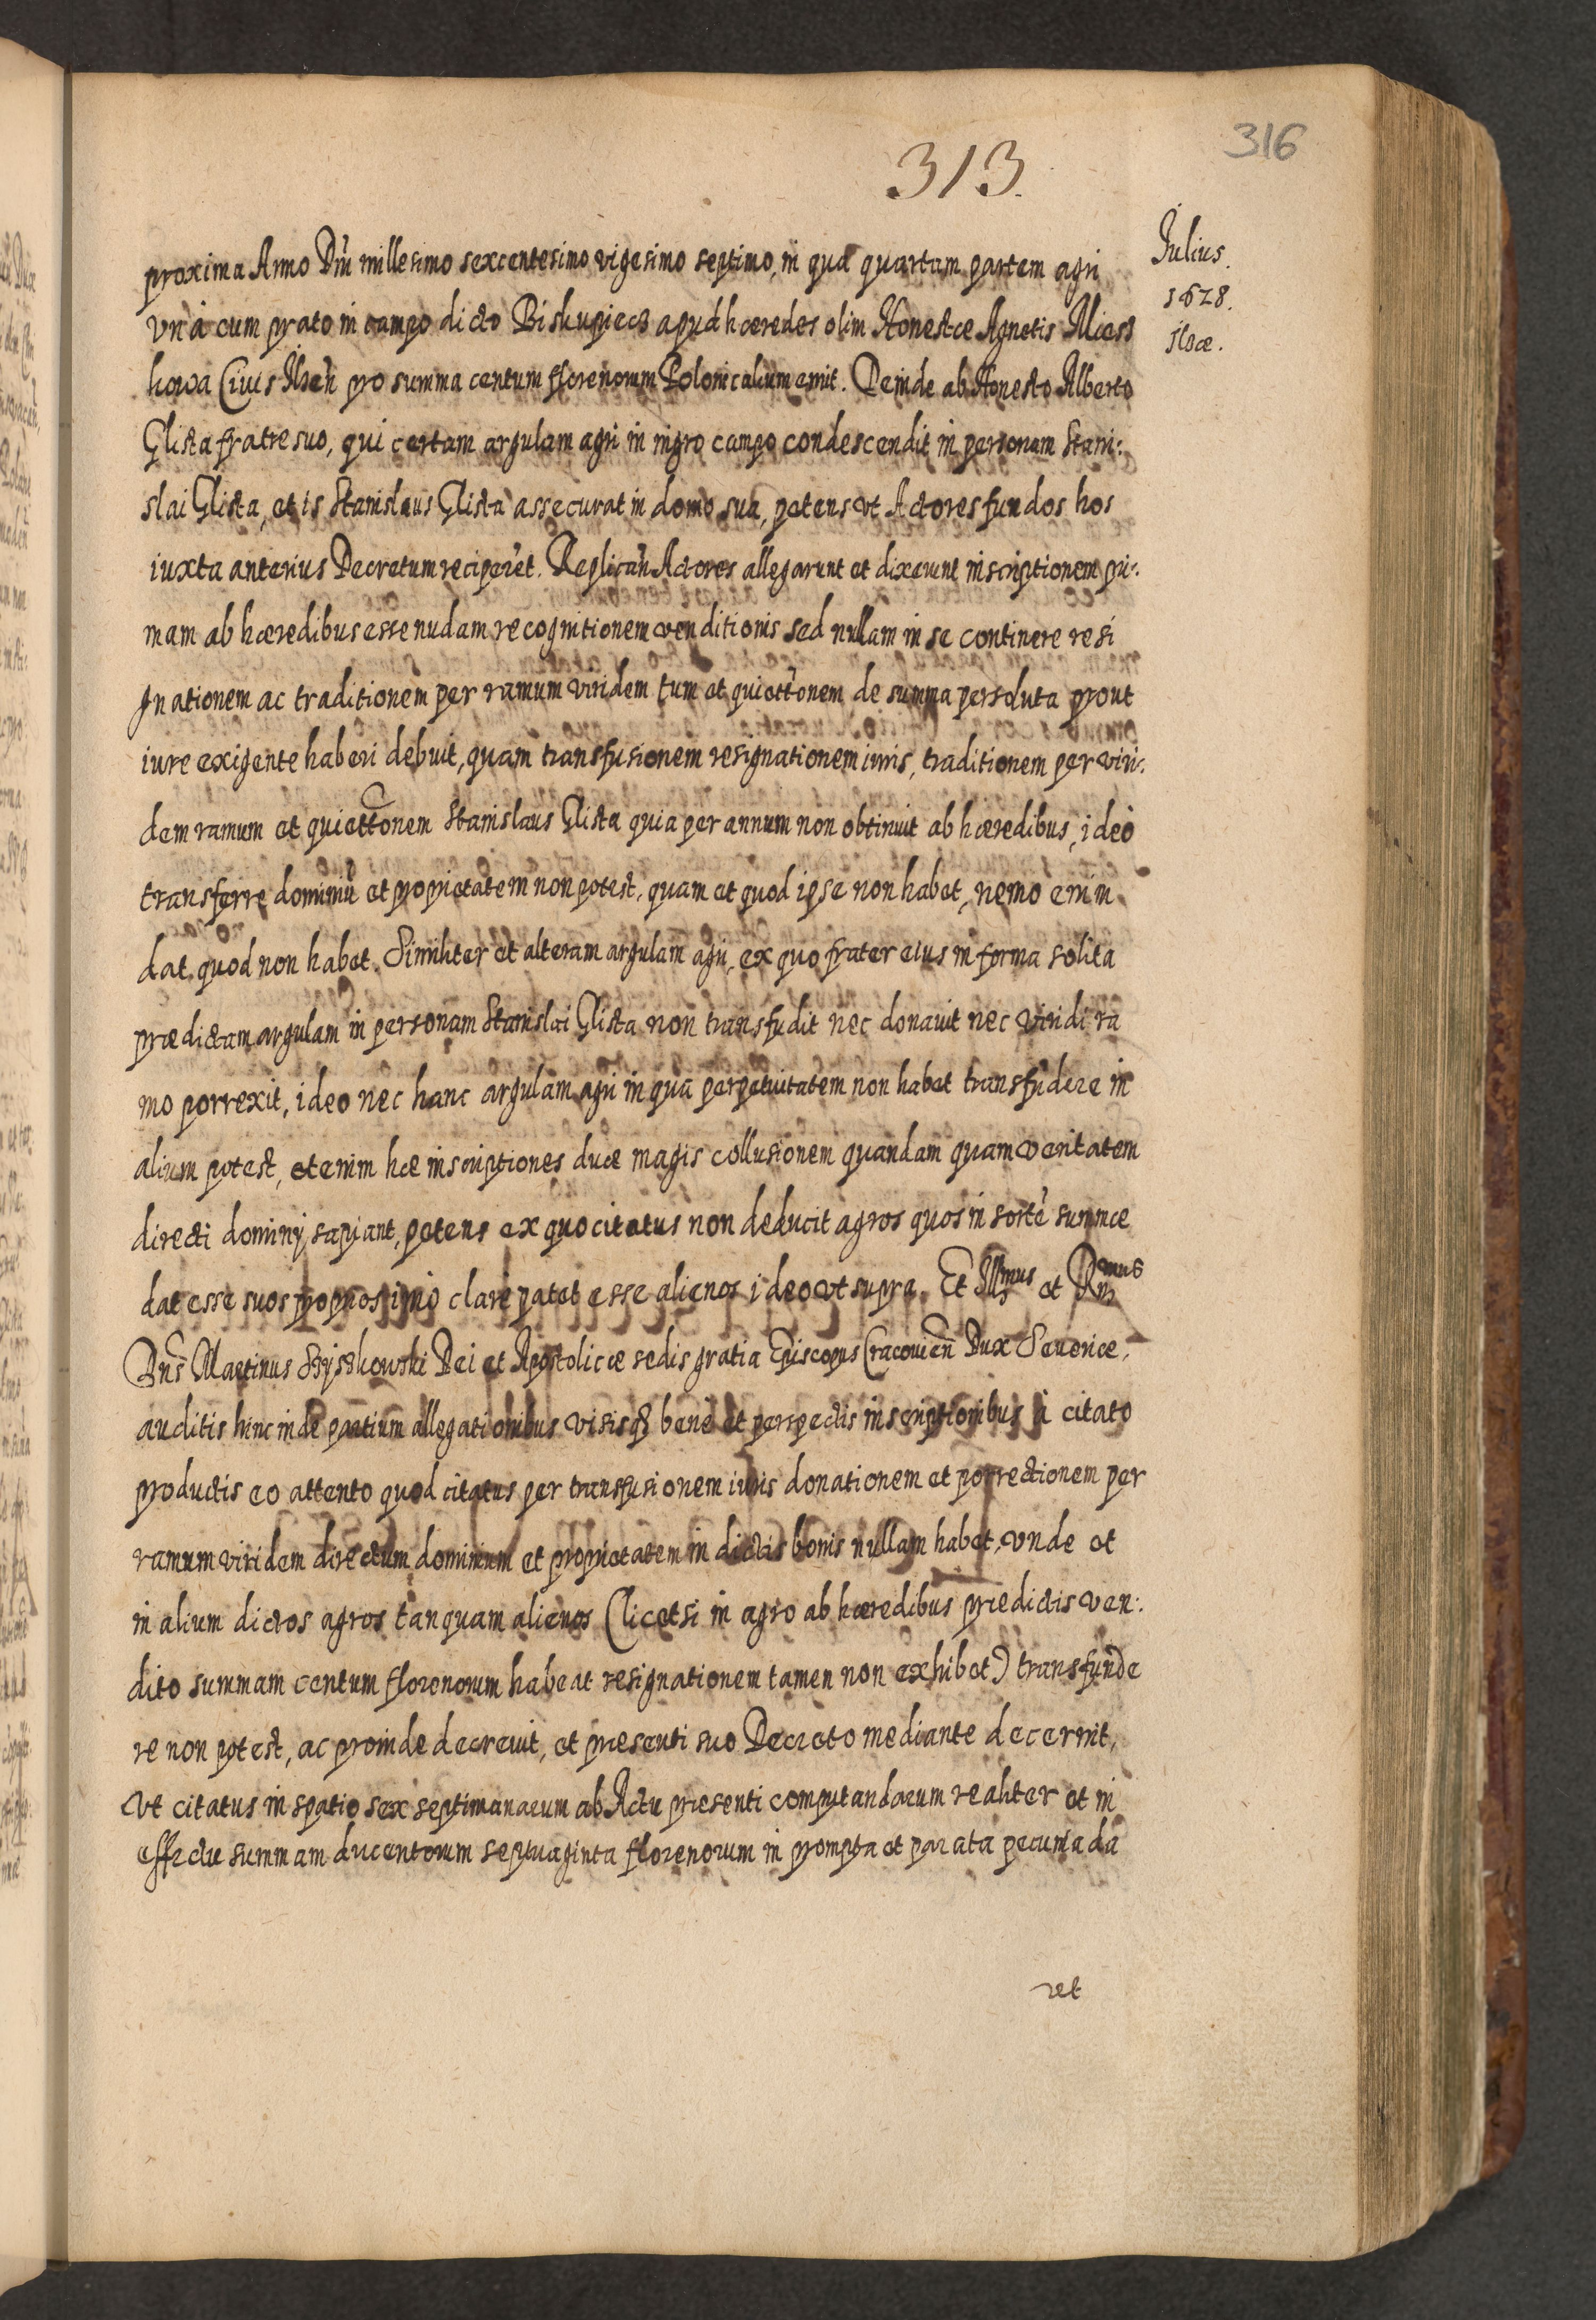 316
313.
Julius.
1628.
Ilzae.
proxima Anno Dñi millesimo sexcentesimo vigesimo septimo, in qua quartam partem agri
vnà cum prato in campo dicto Biskupiecz apud hæredes olim Honestæ Agnetis Miesz
kowa Ciuis Ilzeñ pro summa centum florenorum Polonicalium emit. Deinde ab Honesto Alberto
Glista fratre suo, qui certam argulam agri in nigro campo condescendit in personam Stani:
slai Glista, et is Stanislaus Glista assecurat in domo sua, petens vt Actores fundos hos
iuxta anterius Decretum reciperet. Replicañ Actores allegarunt et dixerunt inscriptionem pri:
mam ab hæredibus esse nudam recognitionem venditionis sed nullam in se continere resi
gnationem ac traditionem per ramum viridem tum et quiettõnem de summa persoluta prout
iure exigente haberi debuit, quam transfusionem resignationem iuris, traditionem per viri:
dem ramum et quiettõnem Stanislaus Glista quia per annum non obtinuit ab hæredibus, ideo
transferre dominiũ et proprietatem non potest, quam et quod ipse non habet, nemo enim
dat quod non habet. Similiter et alteram argulam agri, ex quo frater eius in forma solita
prædictam argulam in personam Stanislai Glista non transfudit nec donauit nec viridi ra
mo porrexit, ideo nec hanc argulam agri in qua perpetuitatem non habet transfundere in
alium potest, etenim hæ inscriptiones duæ magis collusionem quandam quam veritatem
directi dominij sapiant, petens ex quo citatus non deducit agros quos in sortẽ summæ
dat esse suos proprios imò clarè patet esse alienos ideo vt supra. Et Illmus et Rmus
Dñs Martinus Szyszkowski Dei et Apostolicæ sedis gratia Episcopus Cracouieñ Dux Seueriæ,
auditis hinc inde partium allegationibus visisq3 benè et perspectis inscriptionibus à citato
productis eo attento quod citatus per transfusionem iuris donationem et porrectionem per
ramum viridem directum dominium et proprietatem in dictis bonis nullam habet, vnde et
in alium dictos agros tanquam alienos (licet si in agro ab hæredibus prædictis ven:
dito summam centum florenorum habeat resignationem tamen non exhibet) transfunde
re non potest, ac proinde decreuit, et præsenti suo Decreto mediante decernit,
vt citatus in spatio sex septimanarum ab Actu præsenti computandarum realiter et in
effectu summam ducentorum septuaginta florenorum in prompta et parata pecunia da
ret